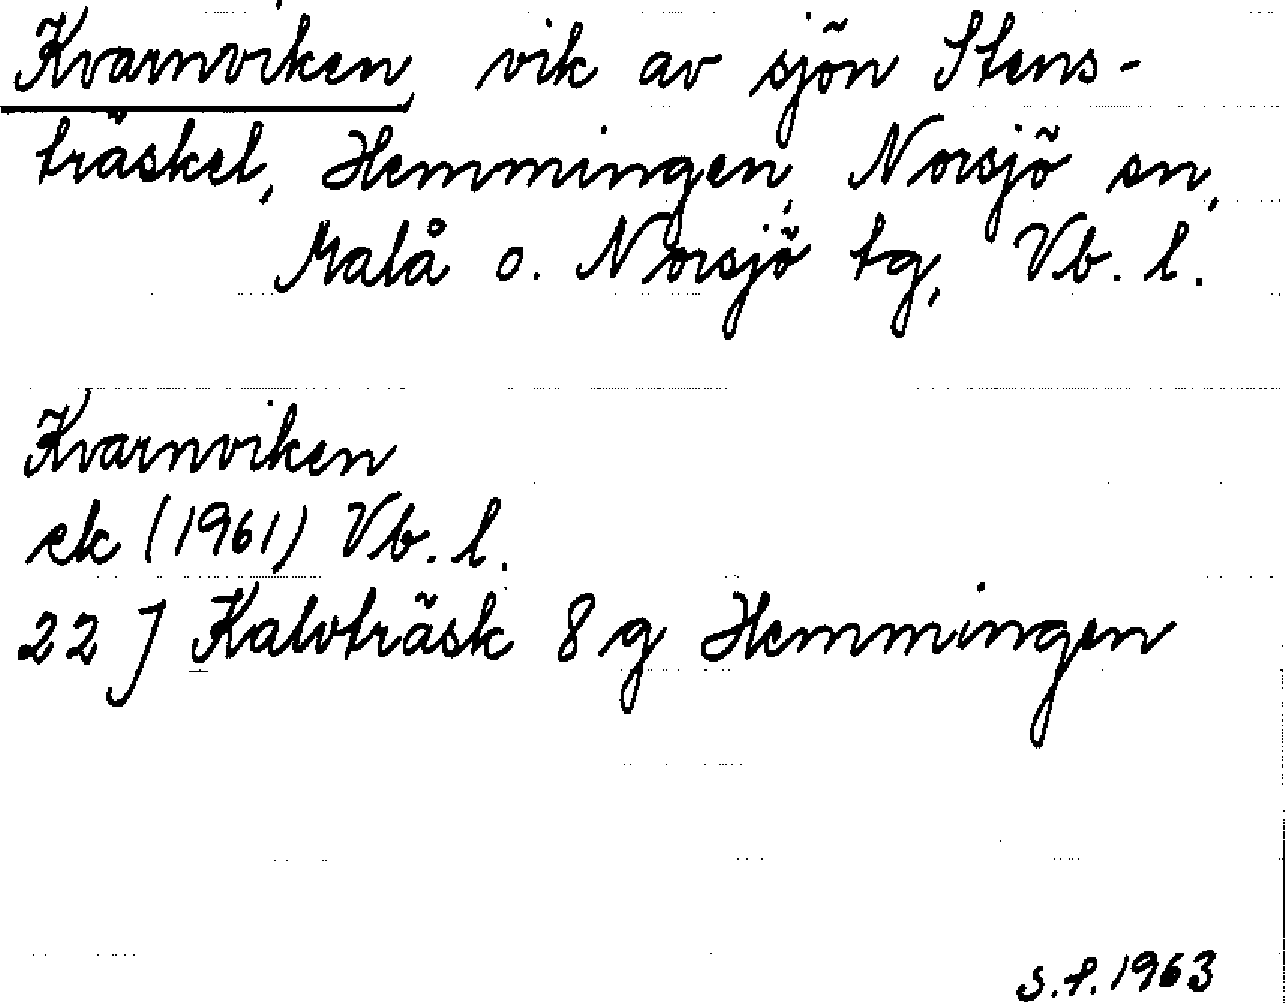 Kvarnviken, vik av sjön Stens-
träsket, Hemmingen, Norsjö sn,
Malå o. Norsjö tg, Vb. l.
Kvarnviken
ek (1961) Vb. l.
22 J Kalvträsk 8 g Hemmingen
S.f. 1963